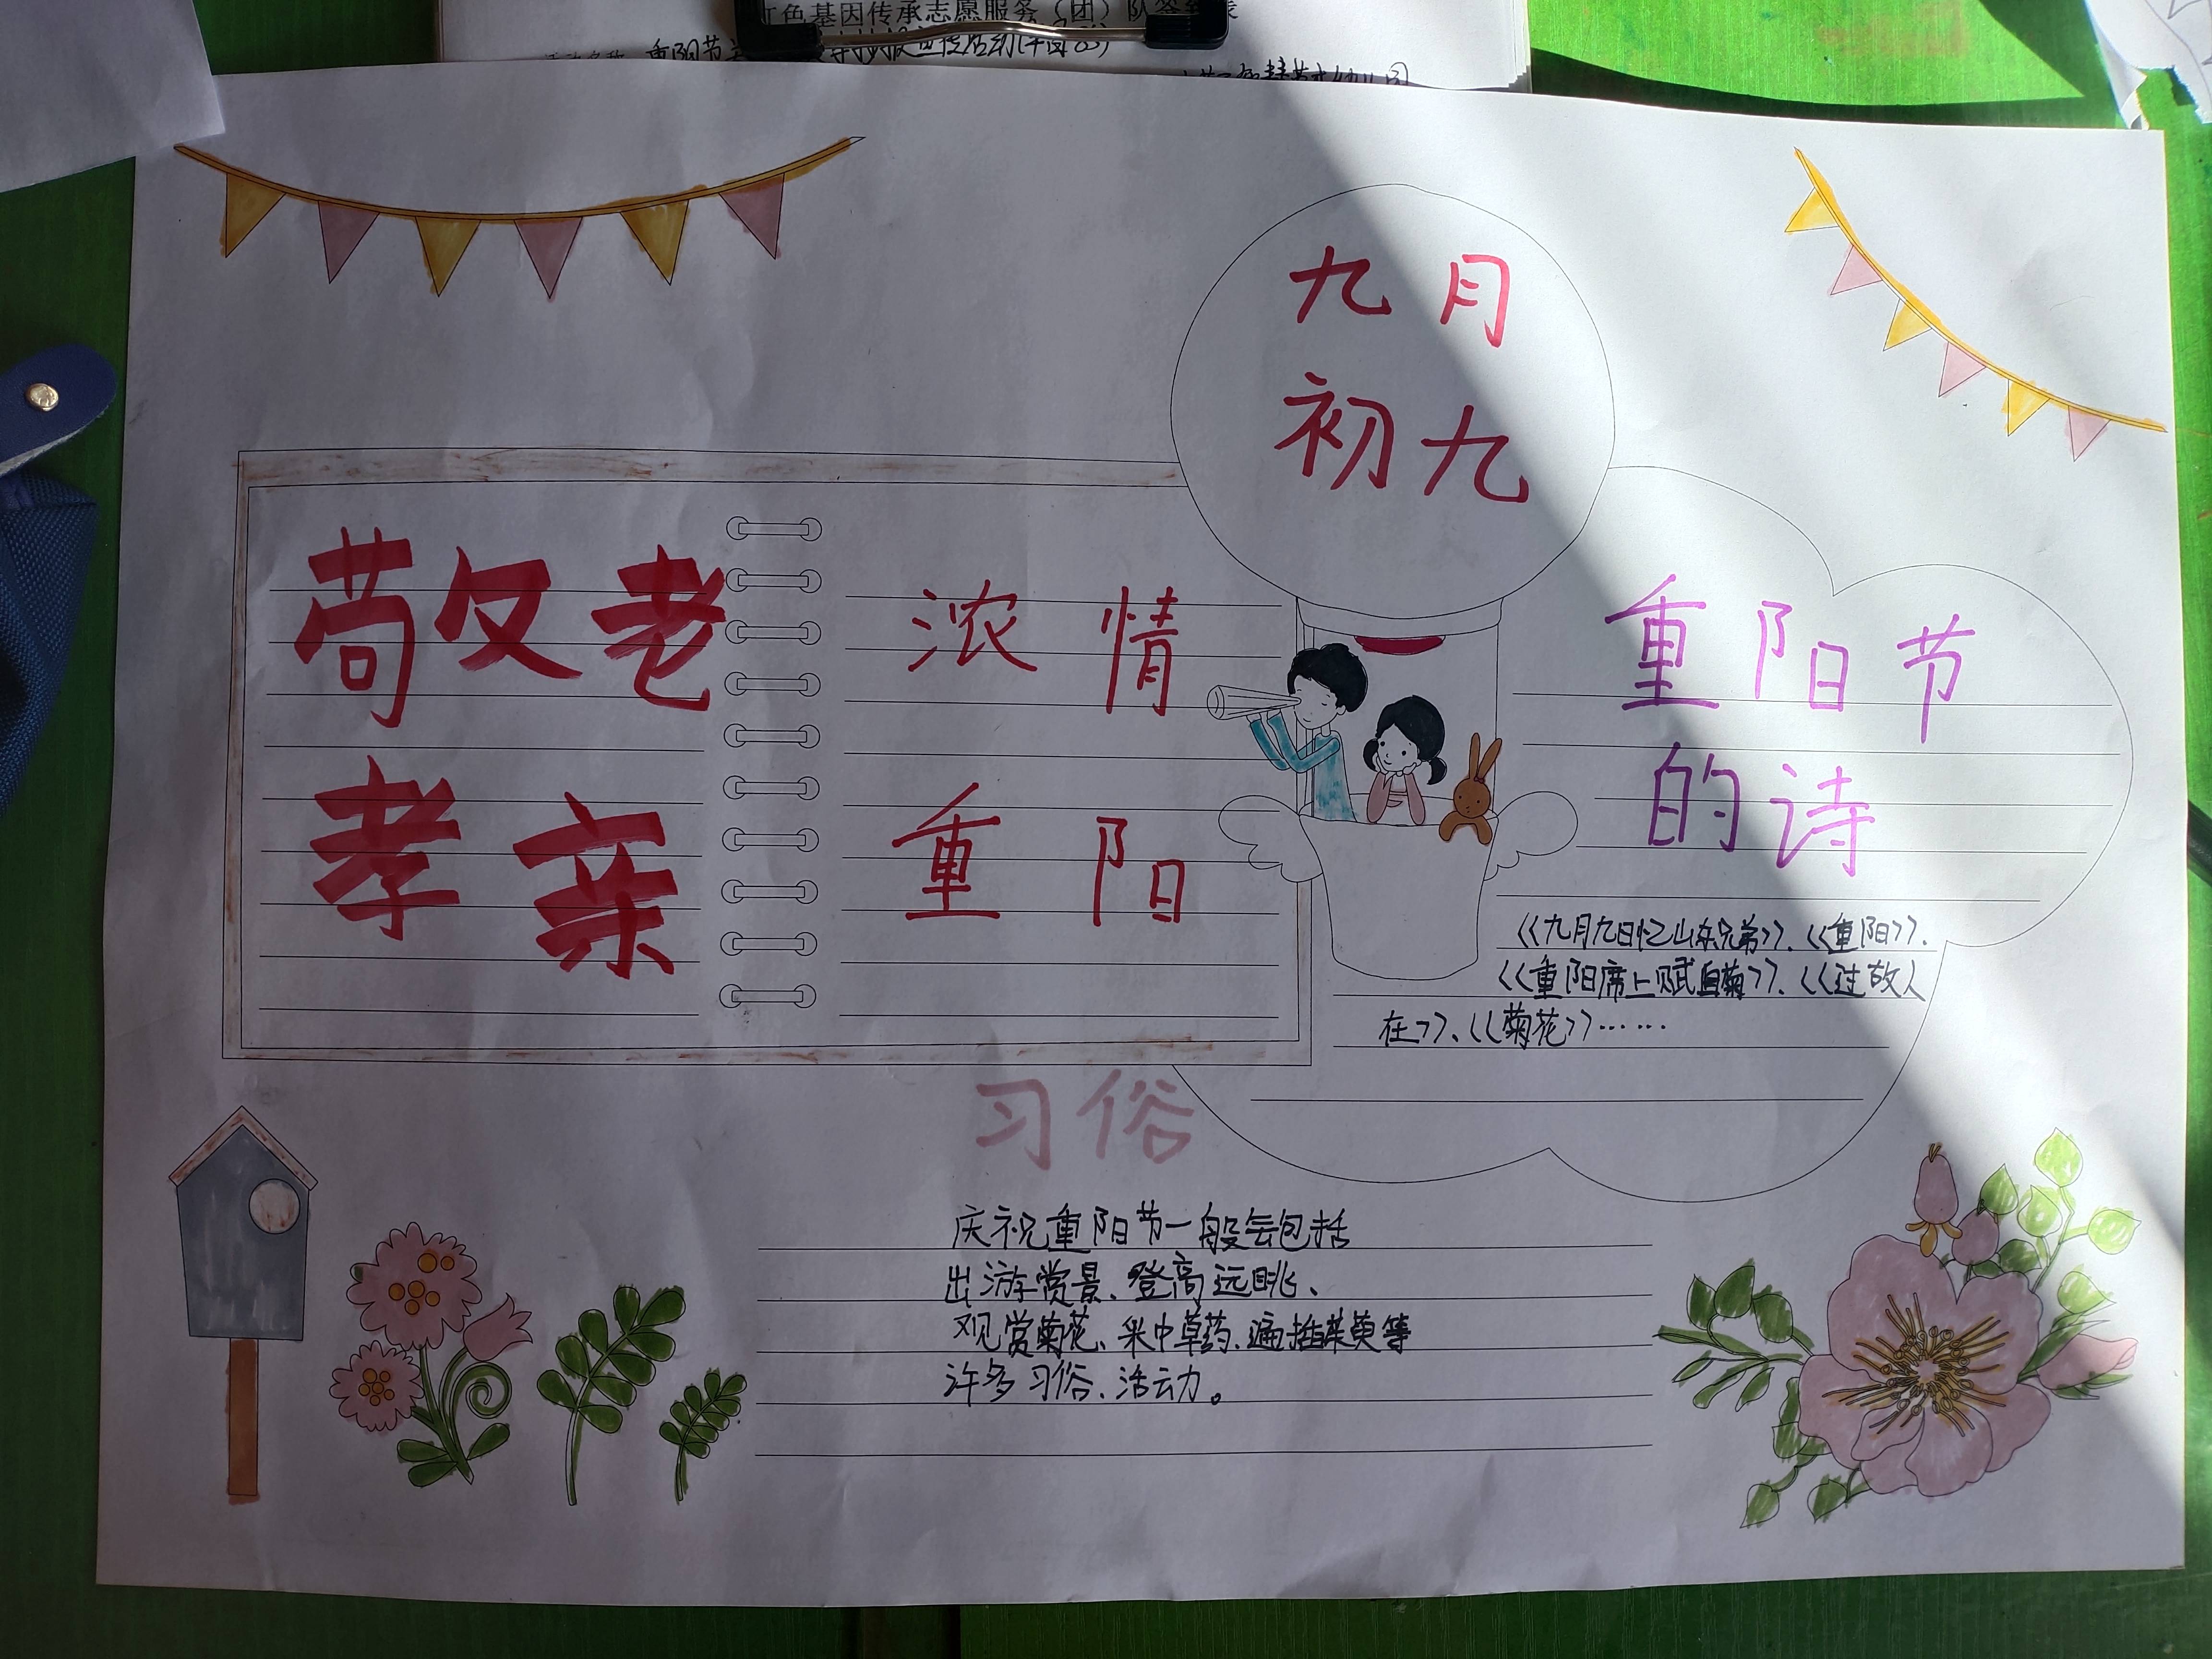 红色基因传承志愿服务(团)队签到表
重阳节
九月
初九
敬老
孝亲
浓情
重阳
重阳节
的诗
《九月九日忆山东兄弟》、《重阳》、
《重阳席上赋白菊》、《过故人
在》、《菊花》……
习俗
庆祝重阳节一般会包括
出游赏景、登高远眺、
观赏菊花、采中草药、遍插茱萸等
许多习俗、活动。